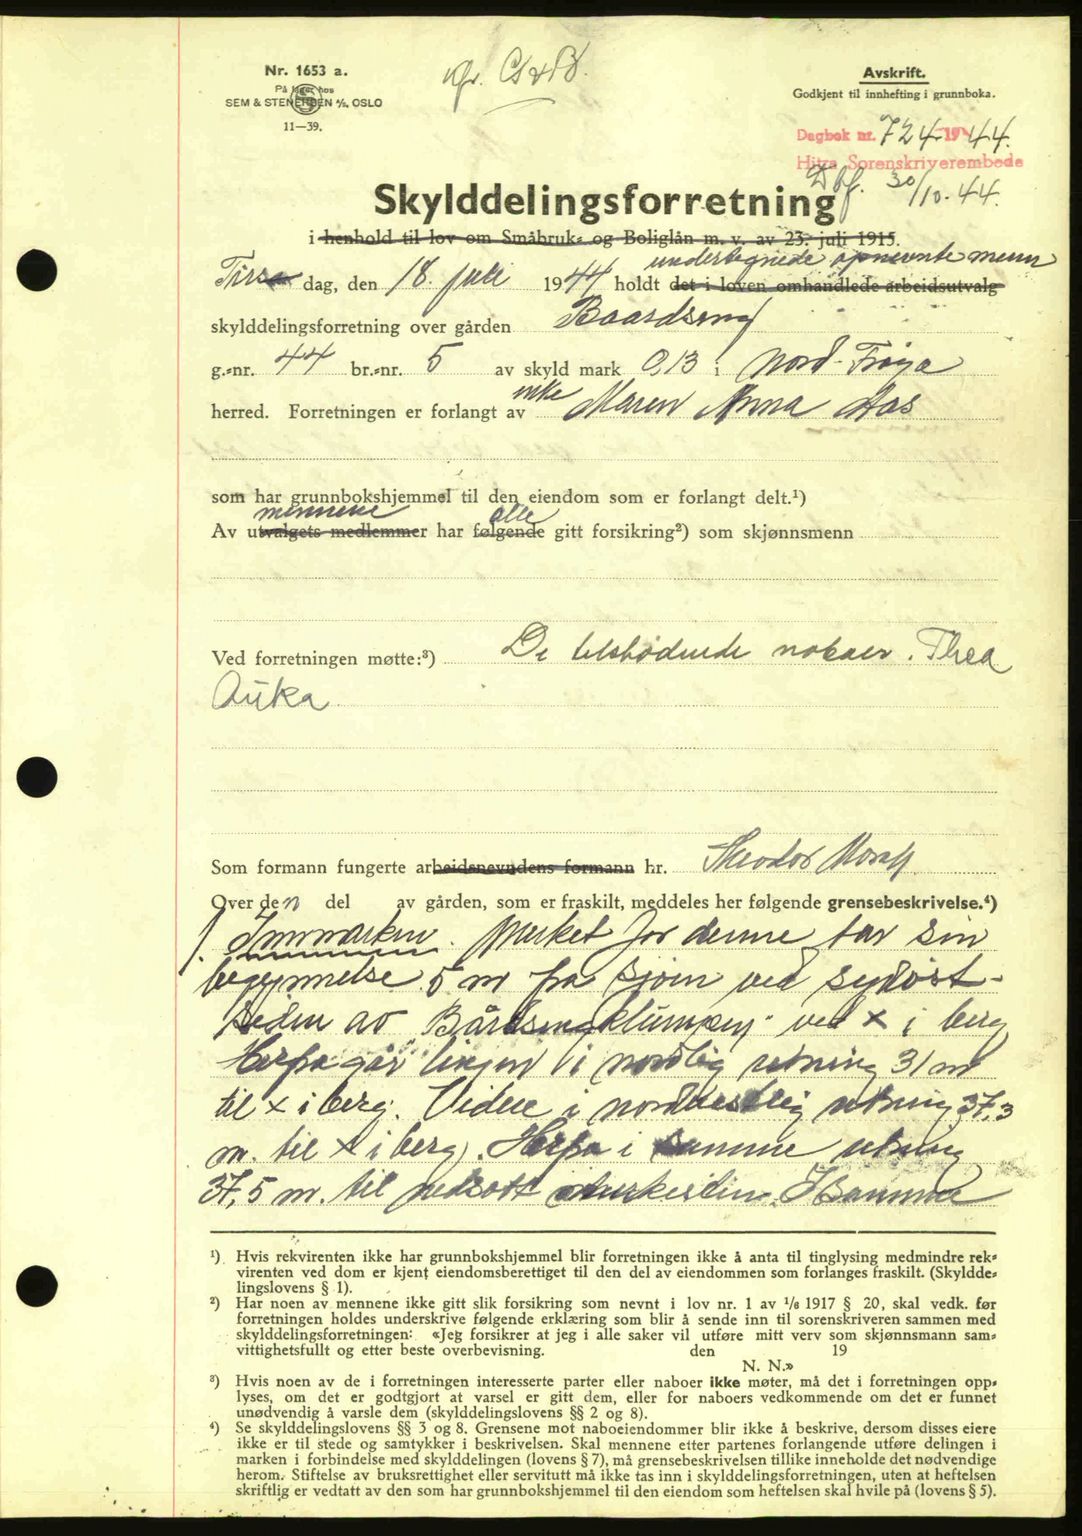 Nr. 1653 a.
På lager hos
SEM & STENERSEN A/S, OSLO
11—39.
Avskrift.
Godkjent til innhefting i grunnboka.
Dagbok nr. 724 1944.
Hitra Sorenskriverembede
Dbf. 30/10-44.
Skylddelingsforretning
i henhold til lov om Småbruk- og Boliglån m. v. av 23. juli 1915.
underlegnede opnevnte menn
Tirsdag, den 18. juli 1944 holdt det i loven omhandlede arbeidsutvalg
skylddelingsforretning over gården Baardseng
g.-nr. 44 br.-nr. 5 av skyld mark 0,13 i Nord-Frøya
herred. Forretningen er forlangt av enke Maren Anna Aas
som har grunnbokshjemmel til den eiendom som er forlangt delt.¹)
mennene alle
Av utvalgets medlemmer har følgende gitt forsikring²) som skjønnsmenn
Ved forretningen møtte:³) De tilstødende naboer. Thea
Auka
Som formann fungerte arbeidsnevndens formann hr. Theodor
Over den del av gården, som er fraskilt, meddeles her følgende grensebeskrivelse.⁴)
1. Innmarken. Merket for denne tar sin
begynnelse 5 m fra sjøen ved sydøst-
siden av Bårdsengklumpen ved x i berg
Herfra går linjen i nordlig retning 31 m
til x i berg. Videre i nordvestlig retning 37,3
m. til x i berg. Herfra i samme retning
37,5 m. til nedsatt merkesten. I samme
¹) Hvis rekvirenten ikke har grunnbokshjemmel blir forretningen ikke å anta til tinglysing medmindre rek-
virenten ved dom er kjent eiendomsberettiget til den del av eiendommen som forlanges fraskilt. (Skyldde-
lingslovens § 1).
²) Har noen av mennene ikke gitt slik forsikring som nevnt i lov nr. 1 av 1/6 1917 § 20, skal vedk. før
forretningen holdes underskrive følgende erklæring som blir å sende inn til sorenskriveren sammen med
skylddelingsforretningen: «Jeg forsikrer at jeg i alle saker vil utføre mitt verv som skjønnsmann sam-
vittighetsfullt og etter beste overbevisning. den 19
N. N.»
³) Hvis noen av de i forretningen interesserte parter eller naboer ikke møter, må det i forretningen opp-
lyses, om det er godtgjort at varsel er gitt dem, eller for naboers vedkommende om det er funnet
unødvendig å varsle dem (skylddelingslovens §§ 2 og 8).
⁴) Se skylddelingslovens §§ 3 og 8. Grensene mot naboeiendommer blir ikke å beskrive, dersom disses eiere
ikke er til stede og samtykker i beskrivelsen. Skal mennene etter partenes forlangende utføre delingen i
marken i forbindelse med skylddelingen (lovens § 7), må grensebeskrivelsen tillike inneholde det nødvendige
herom. Stiftelse av bruksrettighet eller servitutt må ikke tas inn i skylddelingsforretningen, uten at heftelsen
skriftlig er vedtatt av den som har grunnbokshjemmel til den eiendom som heftelsen skal hvile på (lovens § 5).